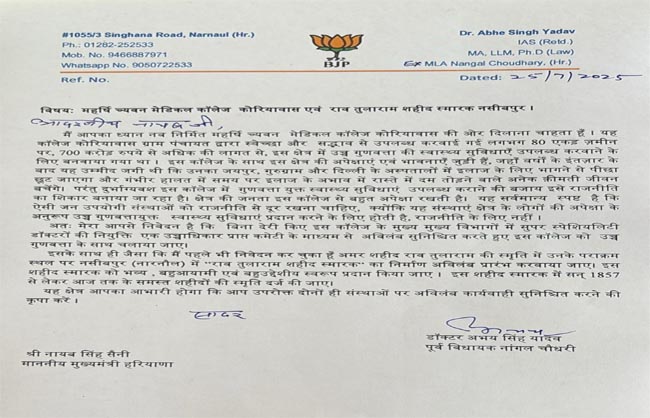 #1055/3 Singhana Road, Narnaul (Hr.)
Ph.: 01282-252533
Mob. No. 9466887971
Whatsapp No. 9050722533
BJP
Dr. Abhe Singh Yadav
IAS (Retd.)
MA, LLM, Ph.D (Law)
Ex MLA Nangal Choudhary, (Hr.)
Ref. No.
Dated: 25/7/2025
विषयः महर्षि च्यवन मेडिकल कॉलेज कोरियावास एवं राव तुलाराम शहीद स्मारक नसीबपुर।
आदरणीय नायब जी,
मैं आपका ध्यान नव निर्मित महर्षि च्यवन मेडिकल कॉलेज कोरियावास की ओर दिलाना चाहता हूँ। यह
कॉलेज कोरियावास ग्राम पंचायत द्वारा स्वेच्छा और सद्भाव से उपलब्ध करवाई गई लगभग 80 एकड़ ज़मीन
पर, 700 करोड़ रुपये से अधिक की लागत से, इस क्षेत्र में उच्च गुणवत्ता की स्वास्थ्य सुविधाएं उपलब्ध करवाने के
लिए बनवाया गया था। इस कॉलेज के साथ इस क्षेत्र की अपेक्षाएं एवं भावनाएँ जुड़ी हैं, जहाँ वर्षों के इंतज़ार के
बाद यह उम्मीद जगी थी कि उनका जयपुर, गुरुग्राम और दिल्ली के अस्पतालों में इलाज के लिए भागने से पीछा
छूट जाएगा और गंभीर हालत में समय पर इलाज के अभाव में रास्ते में दम तोड़ने वाले अनेक कीमती जीवन
बचेंगे। परंतु दुर्भाग्यवश इस कॉलेज में गुणवत्ता युक्त स्वास्थ्य सुविधाएं उपलब्ध कराने की बजाय इसे राजनीति
का शिकार बनाया जा रहा है। क्षेत्र की जनता इस कॉलेज से बहुत अपेक्षा रखती है। यह सर्वमान्य स्पष्ट है कि
ऐसी जन उपयोगी संस्थाओं को राजनीति से दूर रखना चाहिए, क्योंकि यह संस्थाएं क्षेत्र के लोगों की अपेक्षा के
अनुरूप उच्च गुणवत्तायुक्त स्वास्थ्य सुविधाएं प्रदान करने के लिए होती है, राजनीति के लिए नहीं।
अतः मेरा आपसे निवेदन है कि बिना देरी किए इस कॉलेज के मुख्य मुख्य विभागों में सुपर स्पेशियलिटी
डॉक्टरों की नियुक्ति एक उच्चाधिकार प्राप्त कमेटी के माध्यम से अविलंब सुनिश्चित करते हुए इस कॉलेज को उच्च
गुणवत्ता के साथ चलाया जाए।
इसके साथ ही जैसा कि मैं पहले भी निवेदन कर चुका हूँ अमर शहीद राव तुलाराम की स्मृति में उनके पराक्रम
स्थल पर नसीबपुर (नारनौल) में "राव तुलाराम शहीद स्मारक" का निर्माण अविलंब प्रारंभ करवाया जाए। इस
शहीद स्मारक को भव्य, बहुआयामी एवं बहुउद्देशीय स्वरूप प्रदान किया जाए। इस शहीद स्मारक में सन् 1857
से लेकर आज तक के समस्त शहीदों की स्मृति दर्ज की जाए।
यह क्षेत्र आपका आभारी होगा कि आप उपरोक्त दोनों ही संस्थाओं पर अविलंब कार्यवाही सुनिश्चित करने की
कृपा करें।
सादर
डॉक्टर अभय सिंह यादव
पूर्व विधायक नांगल चौधरी
श्री नायब सिंह सैनी
माननीय मुख्यमंत्री हरियाणा